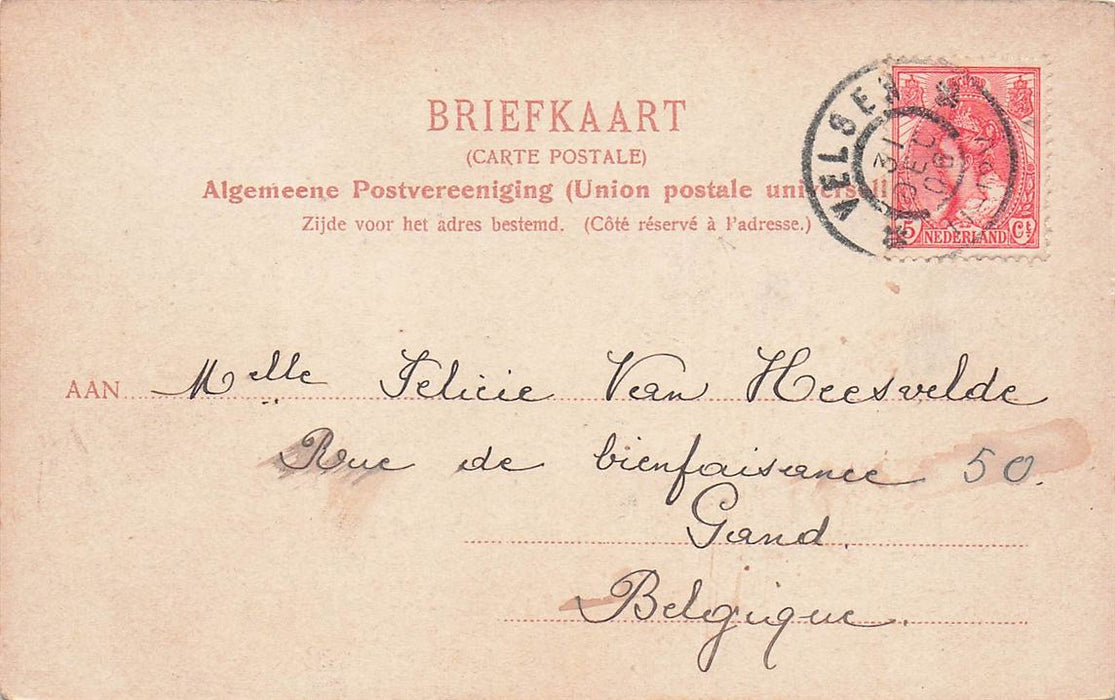 BRIEFKAART
(CARTE POSTALE)
Algemeene Postvereeniging (Union postale universell
Zijde voor het adres bestemd. (Côté réservé à l'adresse.)
VELSEN
31
DEC
5 NEDERLAND Ct
AAN Melle Felicie Van Heesvelde
Rue de bienfaisance 50.
Gand.
Belgique.